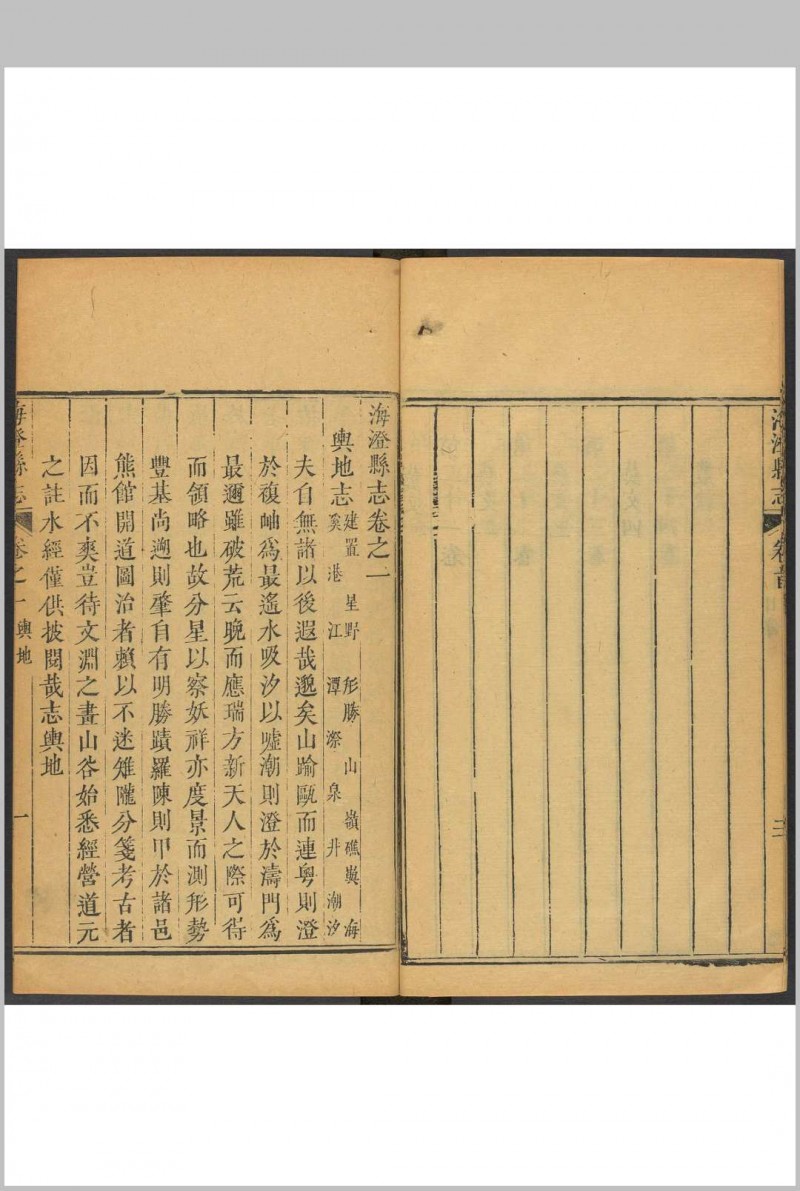 海澄縣志
卷首
三
海澄縣志卷之一
輿地志 建置 星野 形勝 山 嶺 礁 嶼 海
溪 港 江 潭 漈 泉 井 潮汐
夫自無諸以後遐哉邈矣山踰甌而連粵則澄
於複岫爲最遙水吸汐以噓潮則澄於濤門爲
最邇雖破荒云晚而應瑞方新天人之際可得
而領略也故分星以察妖祥亦度景而測形勢
豐基尚遡則肇自有明勝蹟羅陳則甲於諸邑
熊館開道圖治者賴以不迷雉隴分箋考古者
因而不爽豈待文淵之畫山谷始悉經營道元
之註水經僅供披閱哉志輿地
海澄縣志
卷之一
輿地
一